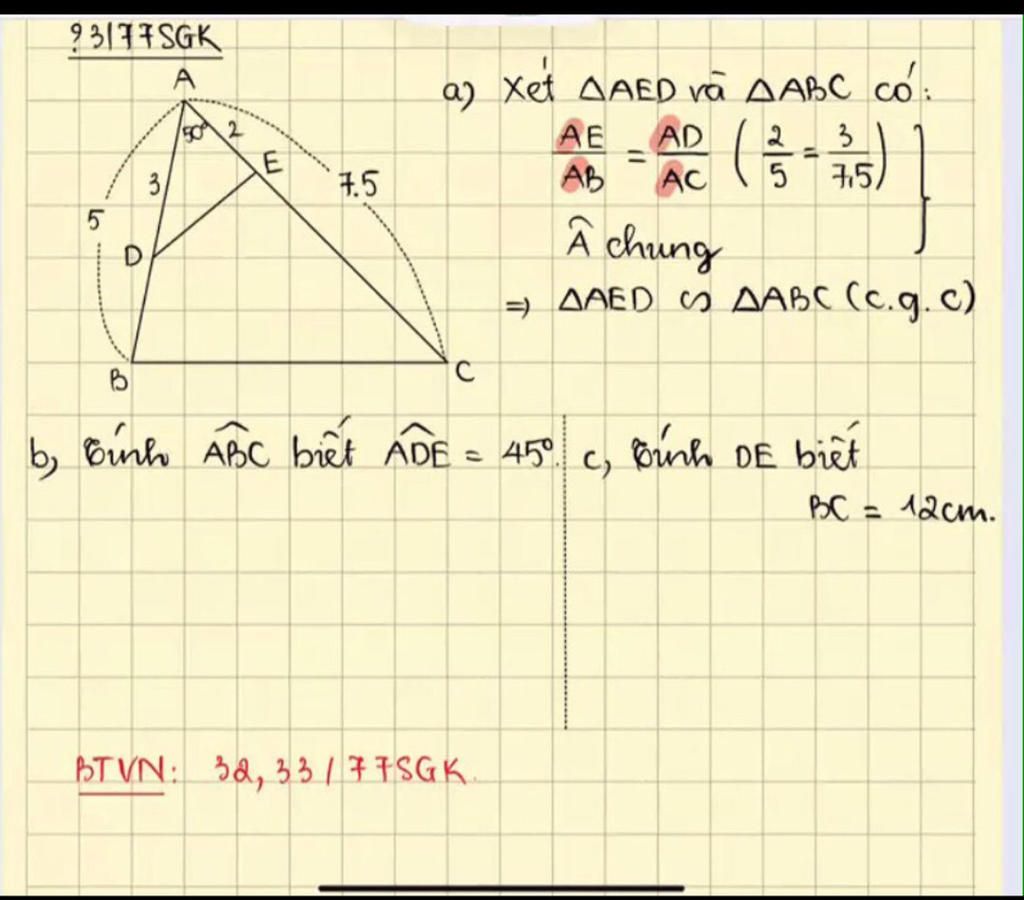 ?3/77SGK
A
50°
2
E
3
7.5
5
D
B
C
a) Xét ΔAED và ΔABC có:
AE/AB = AD/AC (2/5 = 3/7,5)
Â chung
=> ΔAED ∽ ΔABC (c.g.c)
b, Tính \widehat{ABC} biết \widehat{ADE} = 45°.
c, Tính DE biết
BC = 12cm.
BTVN: 32, 33/77SGK.